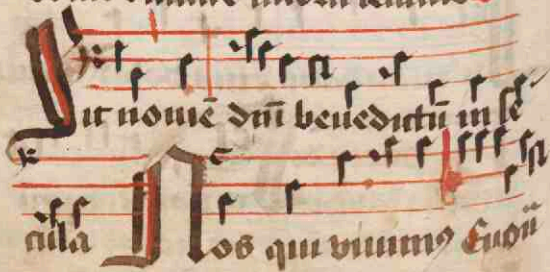 Sit nomē dn̄i benedictū in se
cula Nos qui vivimꝰ Euoū